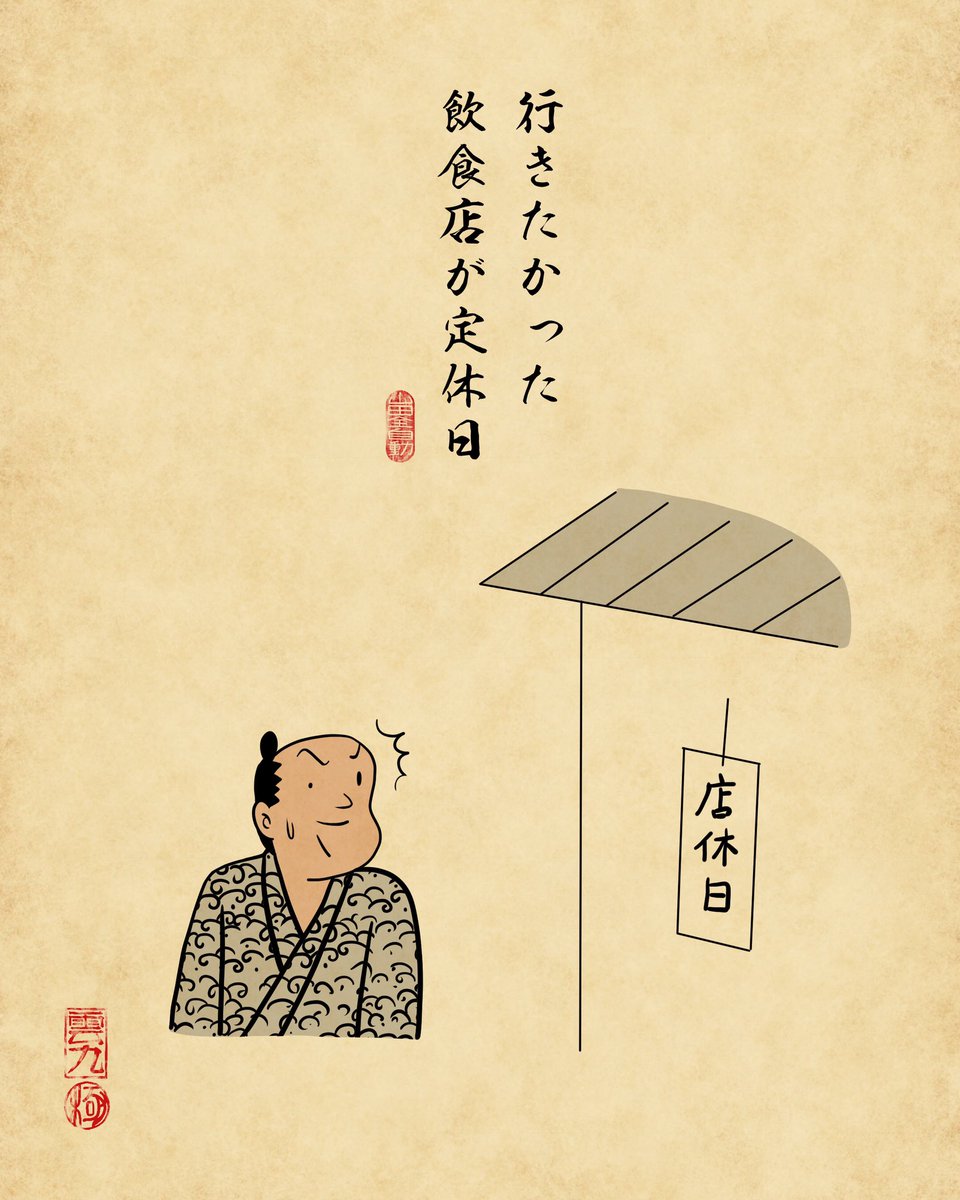 行きたかった
飲食店が定休日
店休日